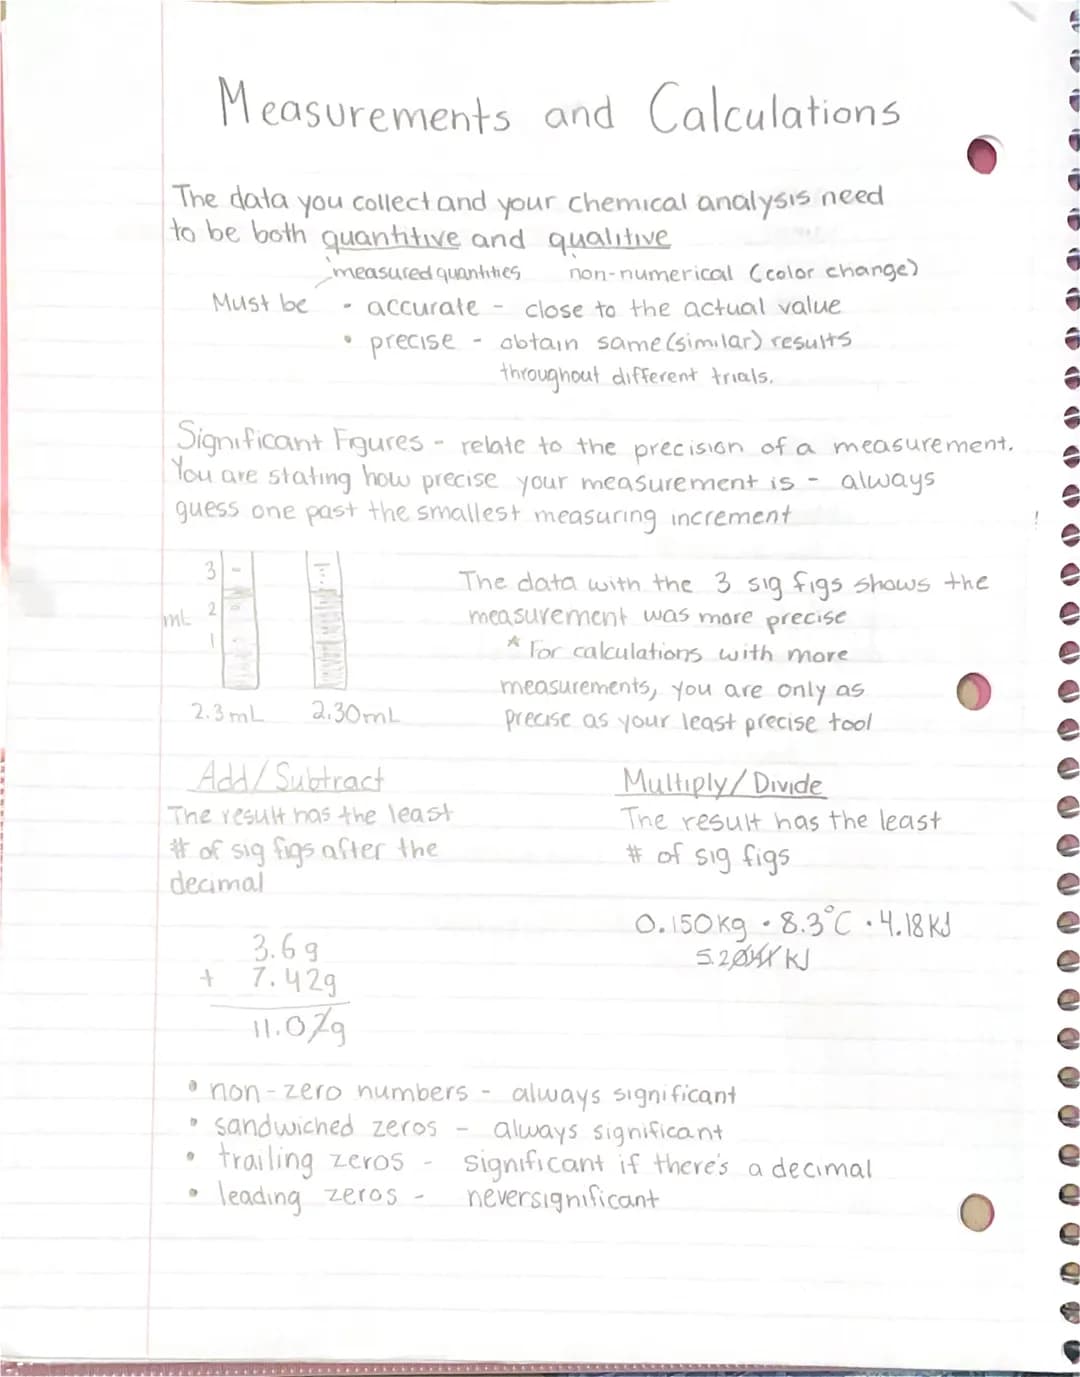 Measurements and Calculations
The data you collect and your chemical analysis need
to be both quantitive and qualitive
measured quantities non-numerical (color change)
Must be • accurate - close to the actual value
• precise - obtain same (similar) results
throughout different trials.
Significant Figures - relate to the precision of a measurement.
You are stating how precise your measurement is - always
guess one past the smallest measuring increment
3
mL 2
1
2.3mL 2.30mL
The data with the 3 sig figs shows the
measurement was more precise
* For calculations with more
measurements, you are only as
precise as your least precise tool
Add/Subtract
The result has the least
# of sig figs after the
decimal
3.6g
+ 7.42g
11.02g
Multiply/Divide
The result has the least
# of sig figs
0.150kg · 8.3°C · 4.18KJ
5.2041 KJ
• non-zero numbers - always significant
• sandwiched zeros - always significant
• trailing zeros - significant if there's a decimal
• leading zeros - never significant